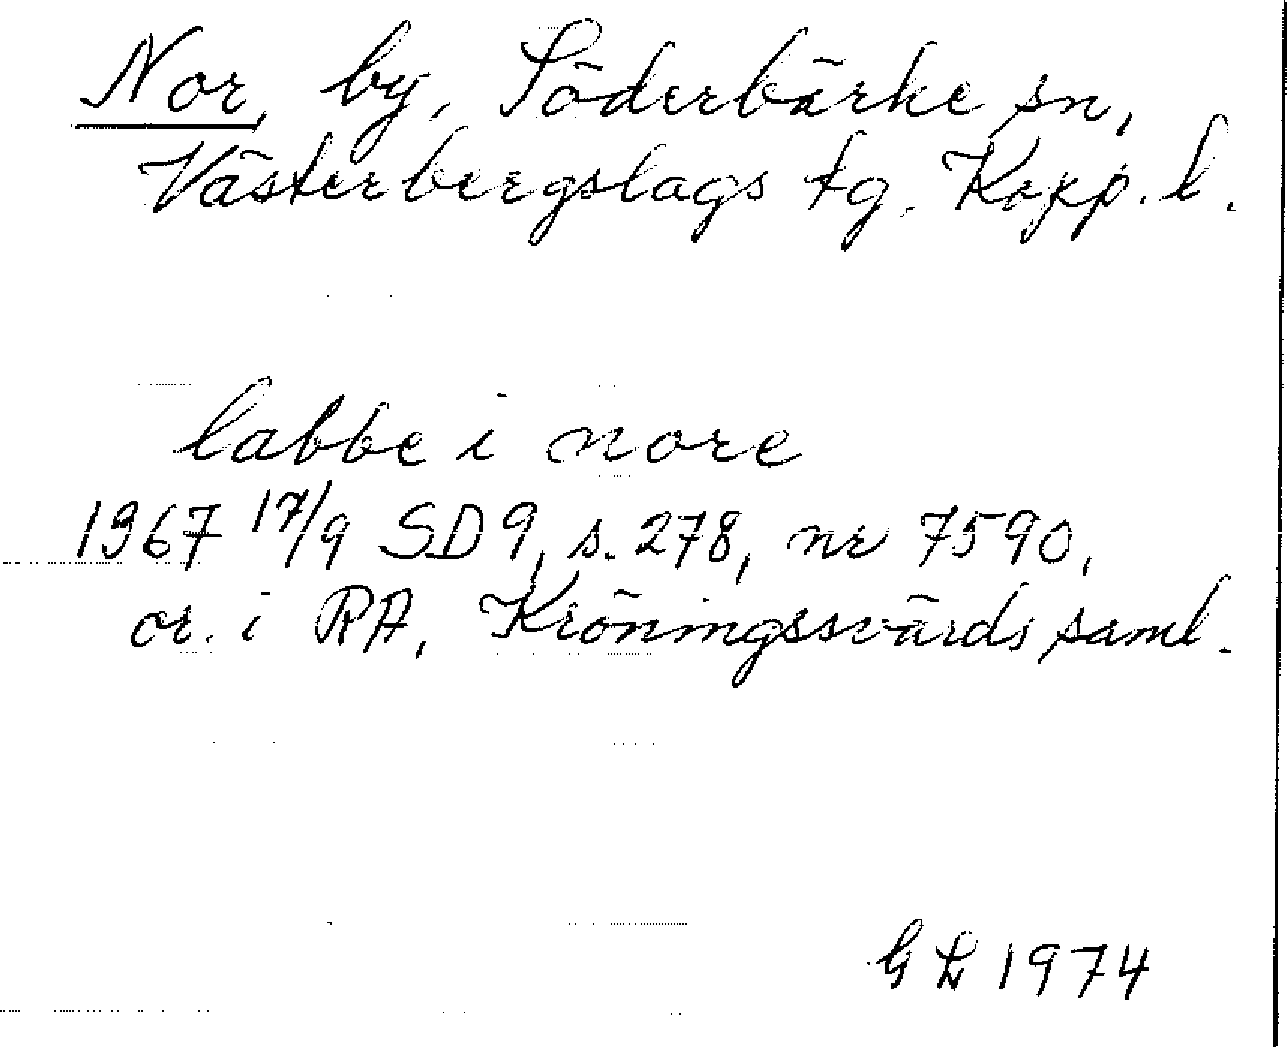 Nor, by, Söderbärke sn,
Västerbergslags tg. Kopp. l.
labbe i nore
1367 17/9 SD 9, s. 278, nr 7590,
or. i RA, Kröningssvärds saml.
1974